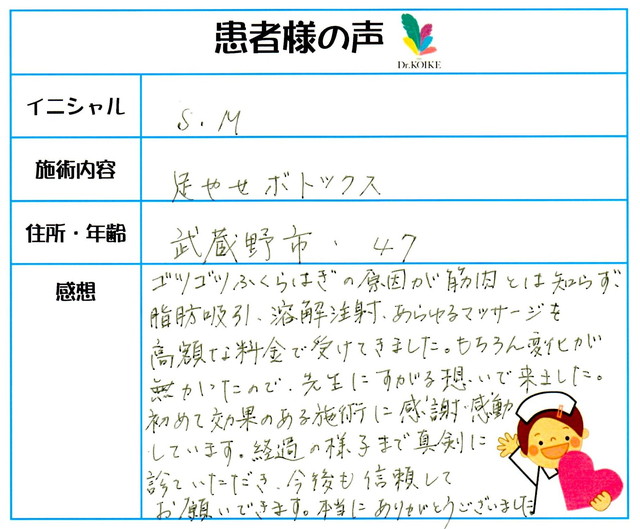 患者様の声
Dr.KOIKE
イニシャル
S.M
施術内容
足やせボトックス
住所・年齢
武蔵野市・47
感想
ゴツゴツふくらはぎの原因が筋肉とは知らず、
脂肪吸引、溶解注射、あらゆるマッサージを
高額な料金で受けてきました。もちろん変化が
無かいたので、先生にすがる想いで来ました。
初めて効果のある施術に感謝・感動
しています。経過の様子まで真剣に
診ていただき、今後も信頼して
お願いできます。本当にありがとうございました